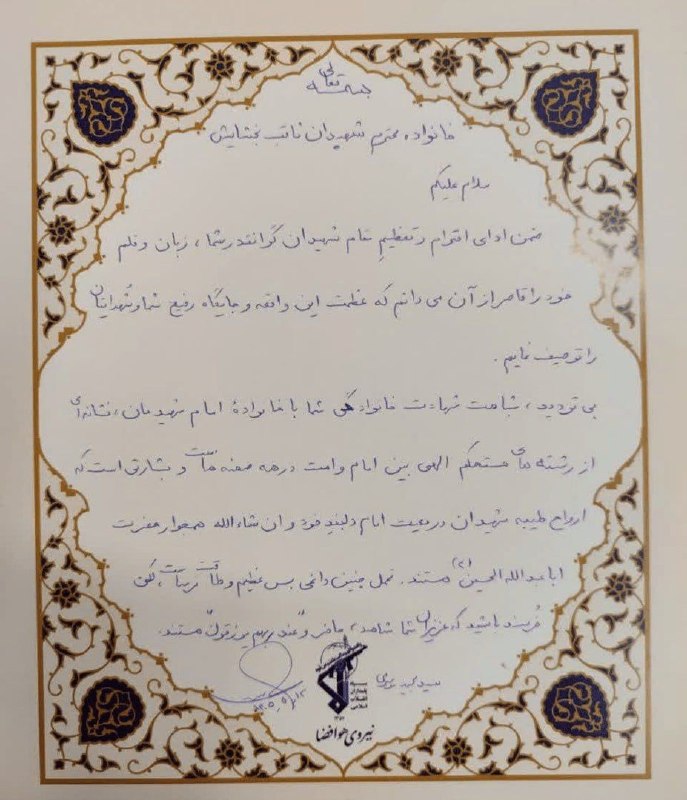 بسمه تعالی
خانواده محترم شهیدان نائب بخشایش
سلام علیکم
ضمن ادای احترام و تعظیم مقام شهیدان گرانقدر شما، زبان و قلم
خود را قاصر از آن می دانم که عظمت این واقعه و جایگاه رفیع شما و شهدایتان
را توصیف نمایم.
بی تردید، شباهت شهادت خانوادگی شما با خانوادهٔ امام شهیدمان، نشانه ای
از رشته های مستحکم الهی بین امام و امت در همه صحنه هاست و بشارتی است که
ارواح طیبه شهیدان در معیت امام دلبند خود و ان شاء الله همجوار حضرت
اباعبدالله الحسین (ع) هستند. تحمل چنین داغی بس عظیم و طاقت فرساست، لکن
خرسند باشید که عزیزان شما شاهد، حاضر و "عند ربهم یرزقون" هستند.
سید مجید موسوی
سپاه
پاسداران
انقلاب
اسلامی
نیروی هوافضا